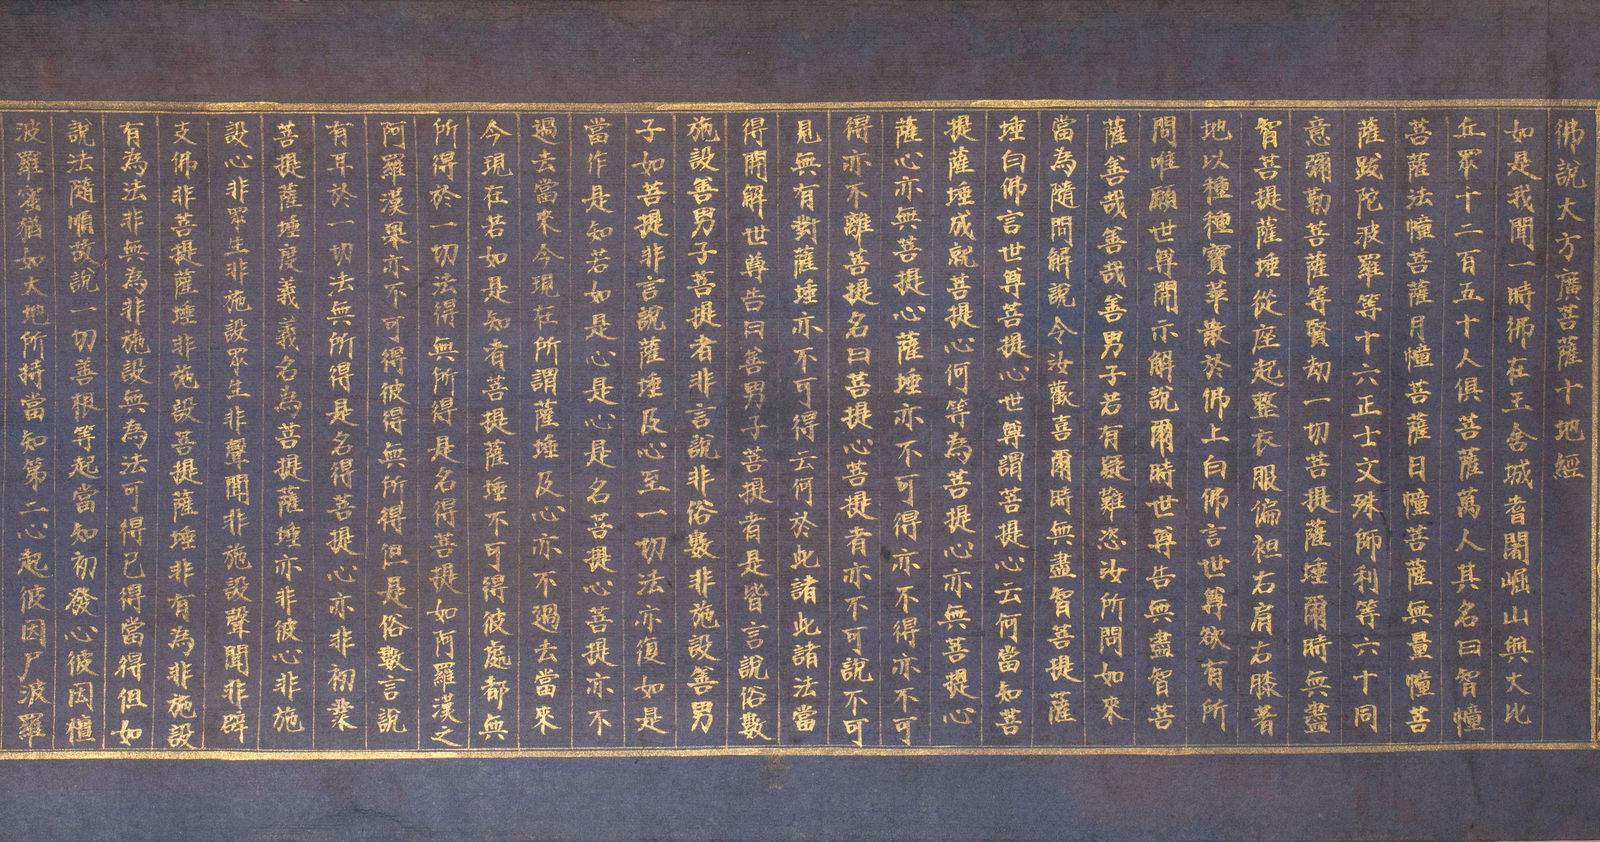 佛說大方廣菩薩十地經
如是我聞一時佛在王舍城耆闍崛山與大比
丘眾十二百五十人俱菩薩萬人其名曰智幢
菩薩法幢菩薩月幢菩薩日幢菩薩無量幢菩
薩跋陀波羅等十六正士文殊師利等六十同
意彌勒菩薩等賢劫一切菩提薩埵爾時無盡
智菩提薩埵從座起整衣服偏袒右肩右膝著
地以種種寶華散於佛上白佛言世尊欲有所
問唯願世尊開示解說爾時世尊告無盡智菩
薩善哉善哉善男子若有疑難恣汝所問如來
當為隨問解說令汝歡喜爾時無盡智菩提薩
埵白佛言世尊菩提心世尊謂菩提心云何當知菩
提薩埵成就菩提心何等為菩提心亦無菩提心
薩心亦無菩提心薩埵亦不可得亦不得亦不可
得亦不離菩提名曰菩提心菩提者亦不可說不可
見無有對薩埵亦不可得云何於此諸此諸法當
得開解世尊告曰善男子菩提者是皆言說俗數
施設善男子菩提者非言說非俗數非施設善男
子如菩提非言說薩埵及心至一切法亦復如是
當作是知若如是心是心是名菩提心菩提亦不
過去當來今現在所謂薩埵及心亦不過去當來
今現在若如是知者菩提薩埵不可得彼處都無
所得於一切法得無所得是名得菩提如阿羅漢之
阿羅漢果亦不可得彼得無所得但是俗數言說
有耳於一切法無所得是名得菩提心亦非初業
菩提薩埵度義義名為菩提薩埵亦非彼心非施
設心非眾生非施設眾生非聲聞非施設聲聞非辟
支佛非菩提薩埵非施設菩提薩埵非有為非施設
有為法非無為非施設無為法可得已得當得但如
說法隨順故說一切善根等起當知初發心彼因檀
波羅蜜猶如大地所持當知第二心起彼因尸波羅